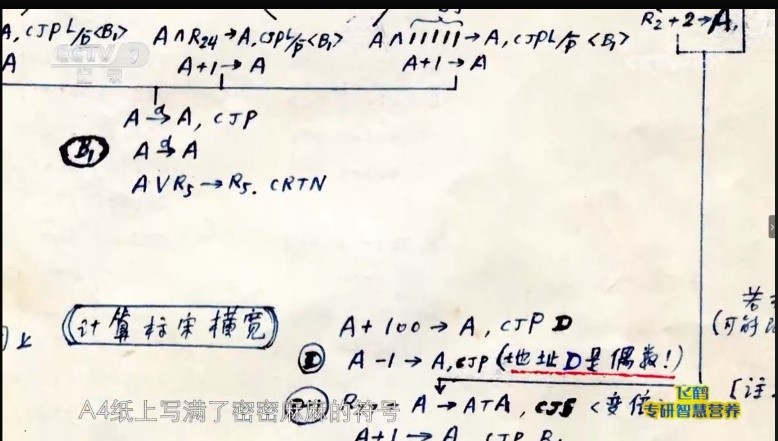 A, CJP L/P̄ <B₁> A∧R₂₄→A, CJP L/P̄ <B₁> A∧111111→A, CJP L/P̄ <B₁>
R₂+2→A₁
A A+1→A A+1→A
CCTV 9
A→A, CJP
B₁ A→A
A∨R₅→R₅. CRTN
计算标宋横宽
A+100→A, CJP D
D A-1→A, CJP (地址D是偶数!)
A→A, CJS <变位
A+1→A CJP
[注
A4纸上写满了密密麻麻的符号
飞鹤
专研智慧营养